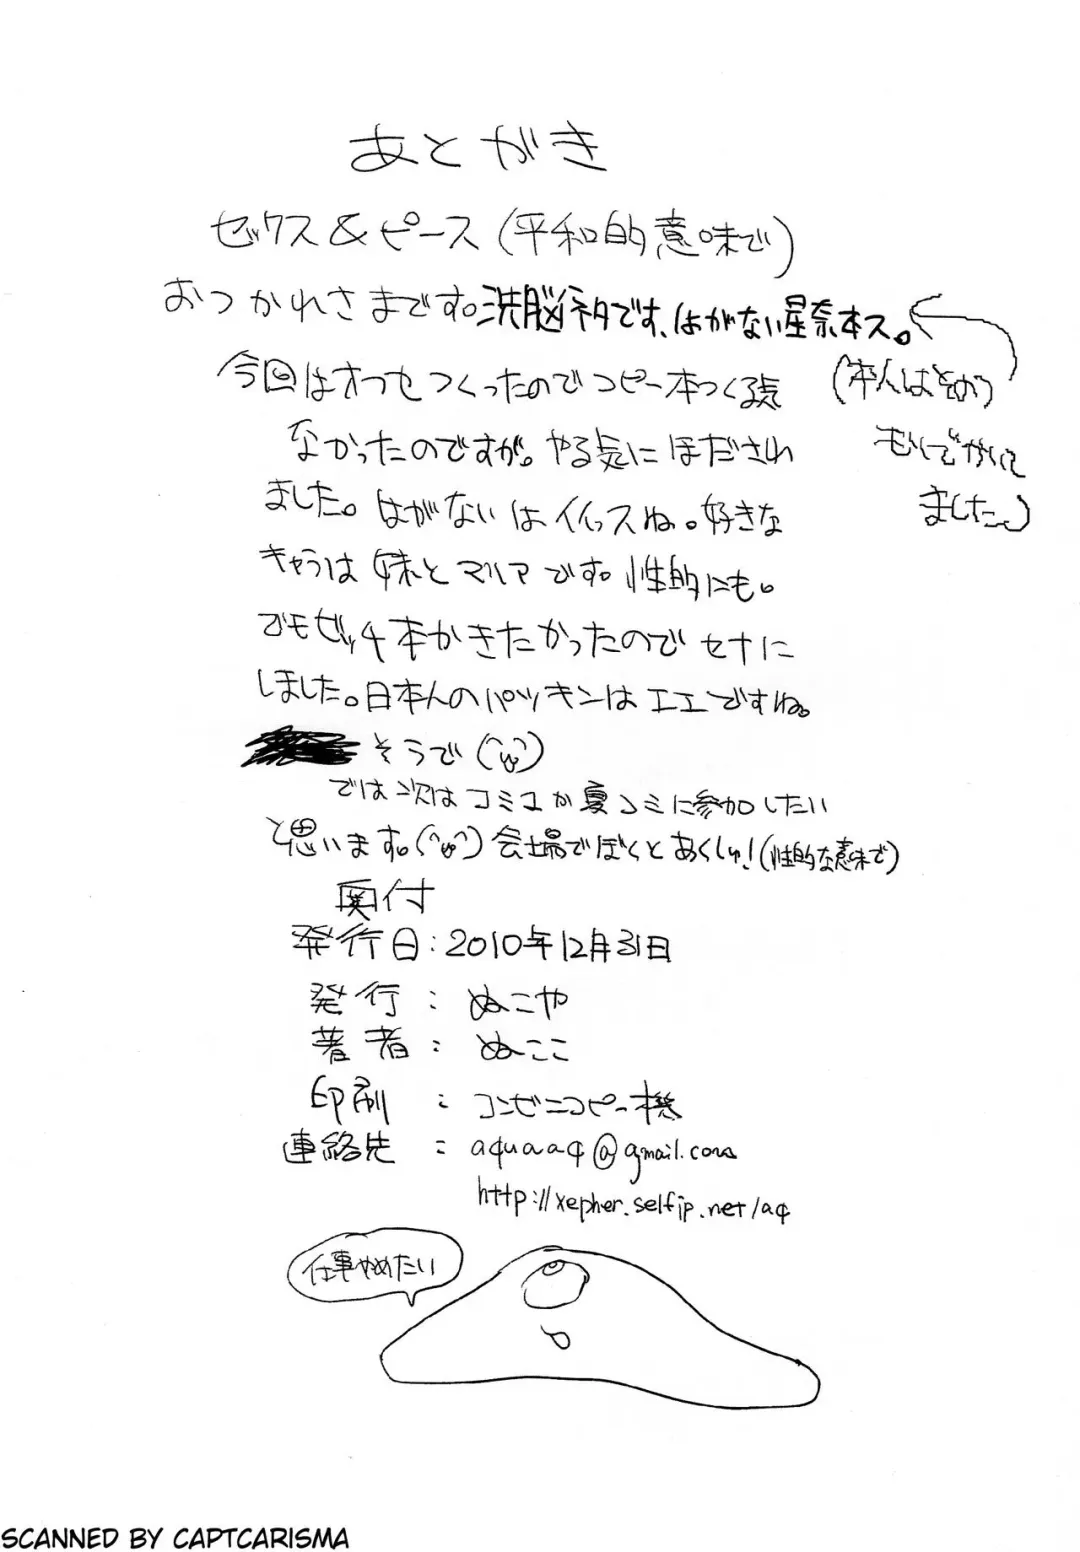 あとがき
セックス&ピース(平和的意味で)
おつかれさまです。洗脳ネタです、はがない星奈本ス。
(本人はその
つもりでかいて
ました。)
今回はオフセつくったのでコピー本つくる気
なかったのですが。やる気にほだされ
ました。はがないはイイっスね。好きな
キャラは妹とマリアです。性的にも。
でもビッチ本かきたかったのでセナに
しました。日本人のパツキンはエエですね。
そうで(^ω^)
では次はコミコか夏コミに参加したい
と思います。(^ω^)会場でぼくとあくしゅ!(性的な意味で)
奥付
発行日:2010年12月31日
発行:ぬこや
著者:ぬここ
印刷:コンビニコピー機
連絡先:aquaaq@gmail.com
http://xepher.selfip.net/aq
仕事やめたい
SCANNED BY CAPTCARISMA